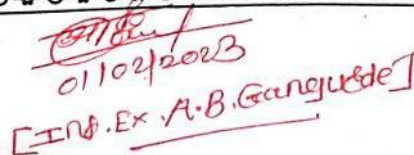 01/02/2023
[Ind. Ex. A.B. Gangurde]